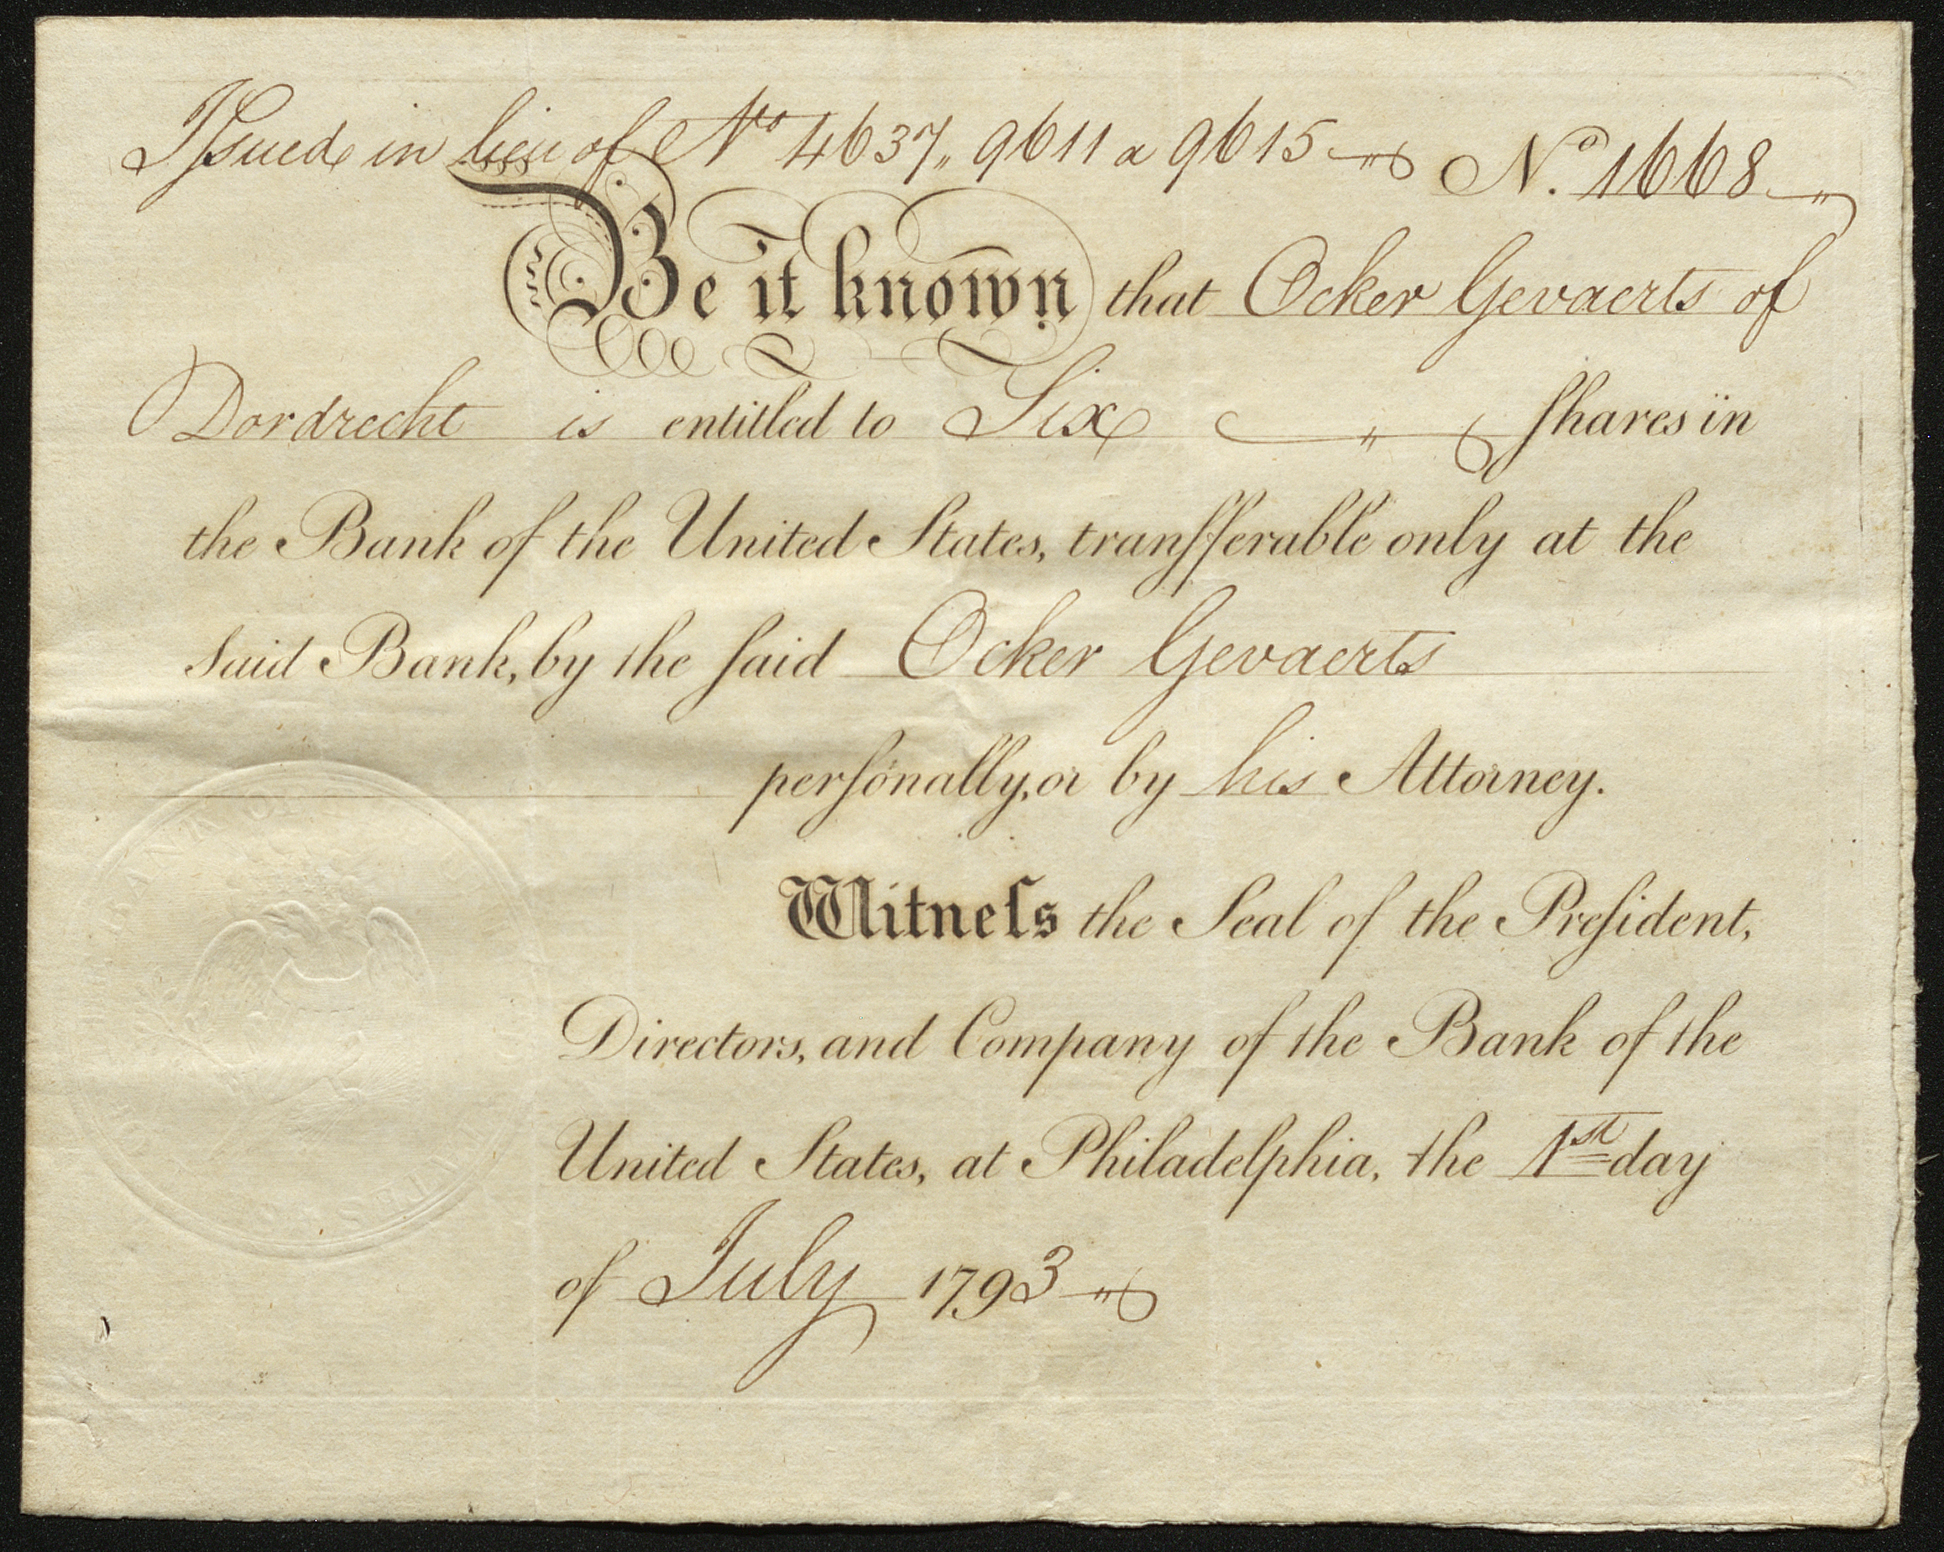 Iſsued in lieu of Nos 4637, 9611 a 9615 No. 1668
Be it known that Ocker Gevaerts of
Dordrecht is entitled to Six ſhares in
the Bank of the United States, tranſferrable only at the
said Bank, by the ſaid Ocker Gevaerts
perſonally, or by his Attorney.
Witneſs the Seal of the Preſident,
Directors, and Company of the Bank of the
United States, at Philadelphia, the 1st day
of July 1793